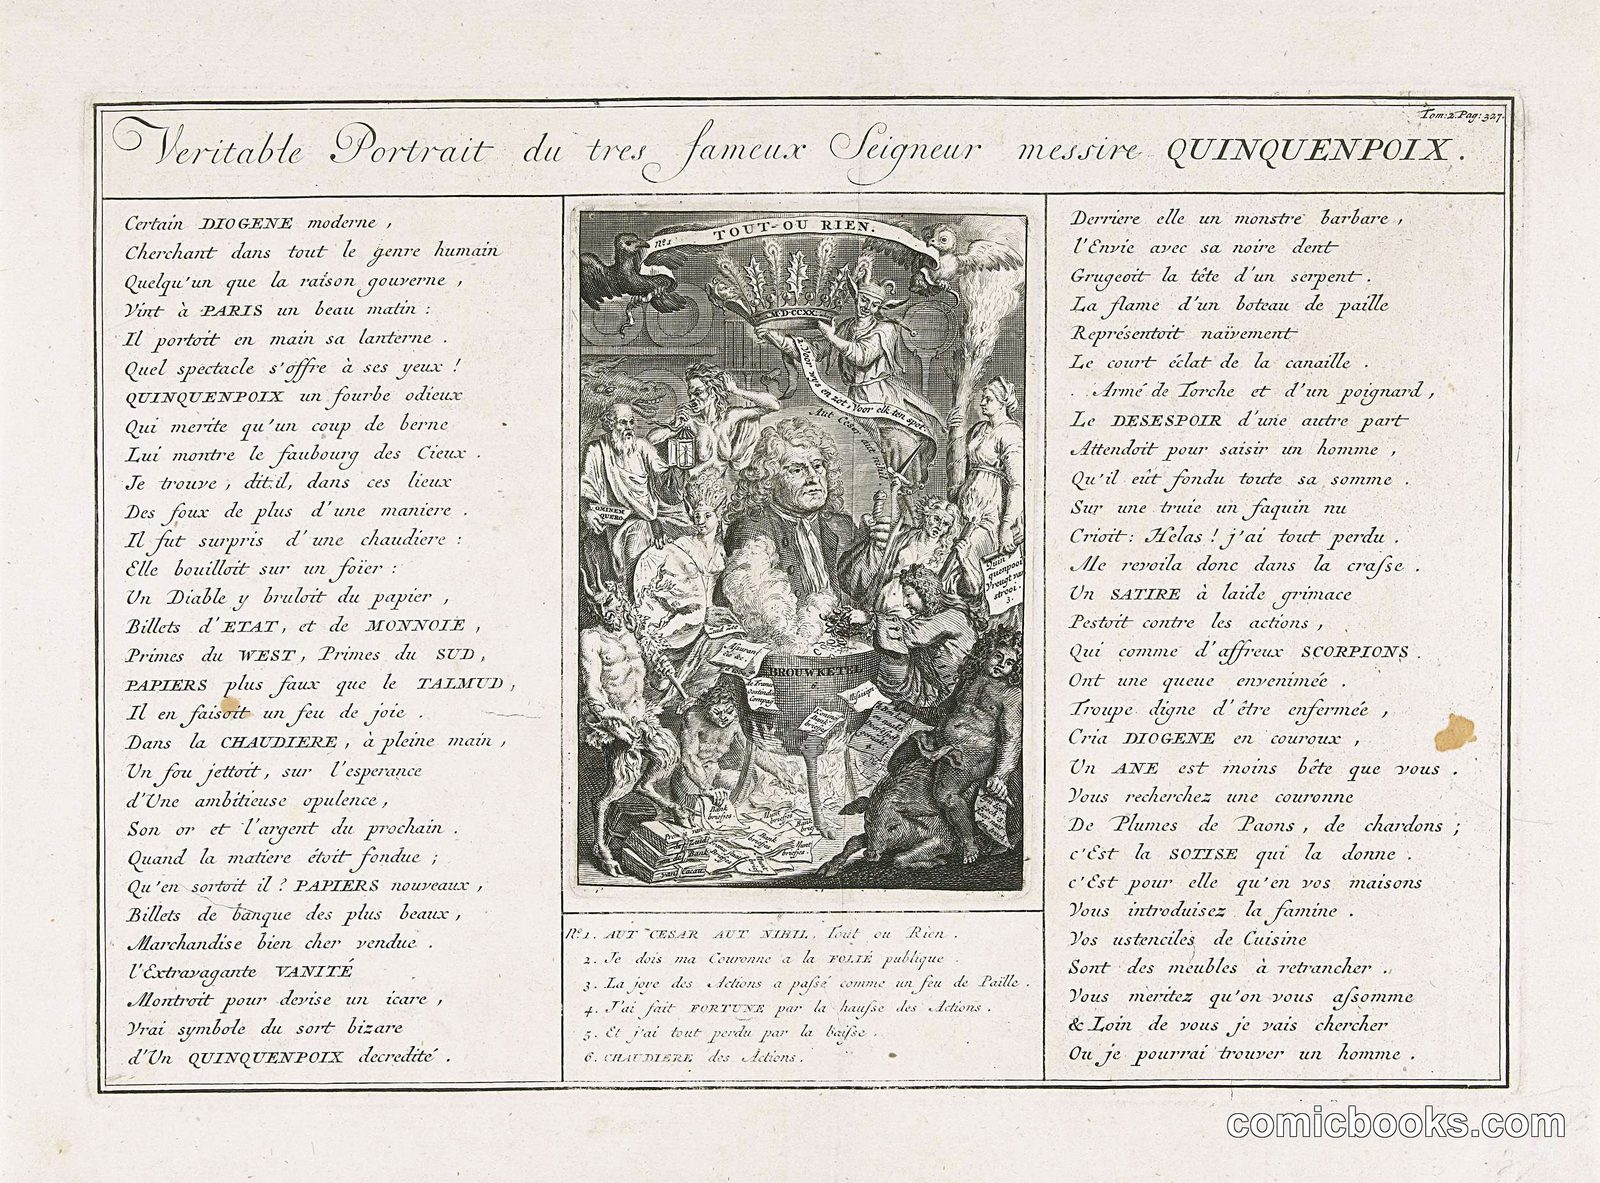 Tom: 2. Pag: 327.
Veritable Portrait du tres fameux Seigneur messire QUINQUENPOIX.
Certain DIOGENE moderne,
Cherchant dans tout le genre humain
Quelqu'un que la raison gouverne,
Vint à PARIS un beau matin:
Il portoit en main sa lanterne.
Quel spectacle s'offre à ses yeux!
QUINQUENPOIX un fourbe odieux
Qui merite qu'un coup de berne
Lui montre le faubourg des Cieux.
Je trouve, dit.il, dans ces lieux
Des foux de plus d'une maniere.
Il fut surpris d'une chaudiere:
Elle bouilloit sur un foier:
Un Diable y bruloit du papier,
Billets d'ETAT, et de MONNOIE,
Primes du WEST, Primes du SUD,
PAPIERS plus faux que le TALMUD,
Il en faisoit un feu de joie.
Dans la CHAUDIERE, à pleine main,
Un fou jettoit, sur l'esperance
d'Une ambitieuse opulence,
Son or et l'argent du prochain.
Quand la matiere étoit fondue;
Qu'en sortoit il? PAPIERS nouveaux,
Billets de banque des plus beaux,
Marchandise bien cher vendue.
l'Extravagante VANITÉ
Montroit pour devise un icare,
Vrai symbole du sort bizare
d'Un QUINQUENPOIX decredité.
No. 1
TOUT-OU RIEN.
MDCCXX
2. Voor wys en zot, Voor elk een spot.
Aut Cesar aut nihil
OMINEM
QUERO.
Quin
quenpoot
Vreugt van
strooi.
3.
Assuran
BROUWKETEL
Missisipi
Bank
briefjes
N°1. AUT CESAR AUT NIHIL, Tout ou Rien.
2. Je dois ma Couronne a la FOLIE publique.
3. La joye des Actions a passé comme un feu de Paille.
4. J'ai fait FORTUNE par la hausse des Actions.
5. Et j'ai tout perdu par la baisse.
6. CHAUDIERE des Actions.
Derriere elle un monstre barbare,
l'Envie avec sa noire dent
Grugeoit la tête d'un serpent.
La flame d'un boteau de paille
Représentoit naïvement
Le court éclat de la canaille.
Armé de Torche et d'un poignard,
Le DESESPOIR d'une autre part
Attendoit pour saisir un homme,
Qu'il eût fondu toute sa somme.
Sur une truie un faquin nu
Crioit: Helas! j'ai tout perdu.
Me revoila donc dans la crasse.
Un SATIRE à laide grimace
Pestoit contre les actions,
Qui comme d'affreux SCORPIONS.
Ont une queue envenimée.
Troupe digne d'être enfermée,
Cria DIOGENE en couroux,
Un ANE est moins bête que vous.
Vous recherchez une couronne
De Plumes de Paons, de chardons;
c'Est la SOTISE qui la donne.
c'Est pour elle qu'en vos maisons
Vous introduisez la famine.
Vos ustenciles de Cuisine
Sont des meubles à retrancher.
Vous meritez qu'on vous assomme
& Loin de vous je vais chercher
Ou je pourrai trouver un homme.
comicbooks.com